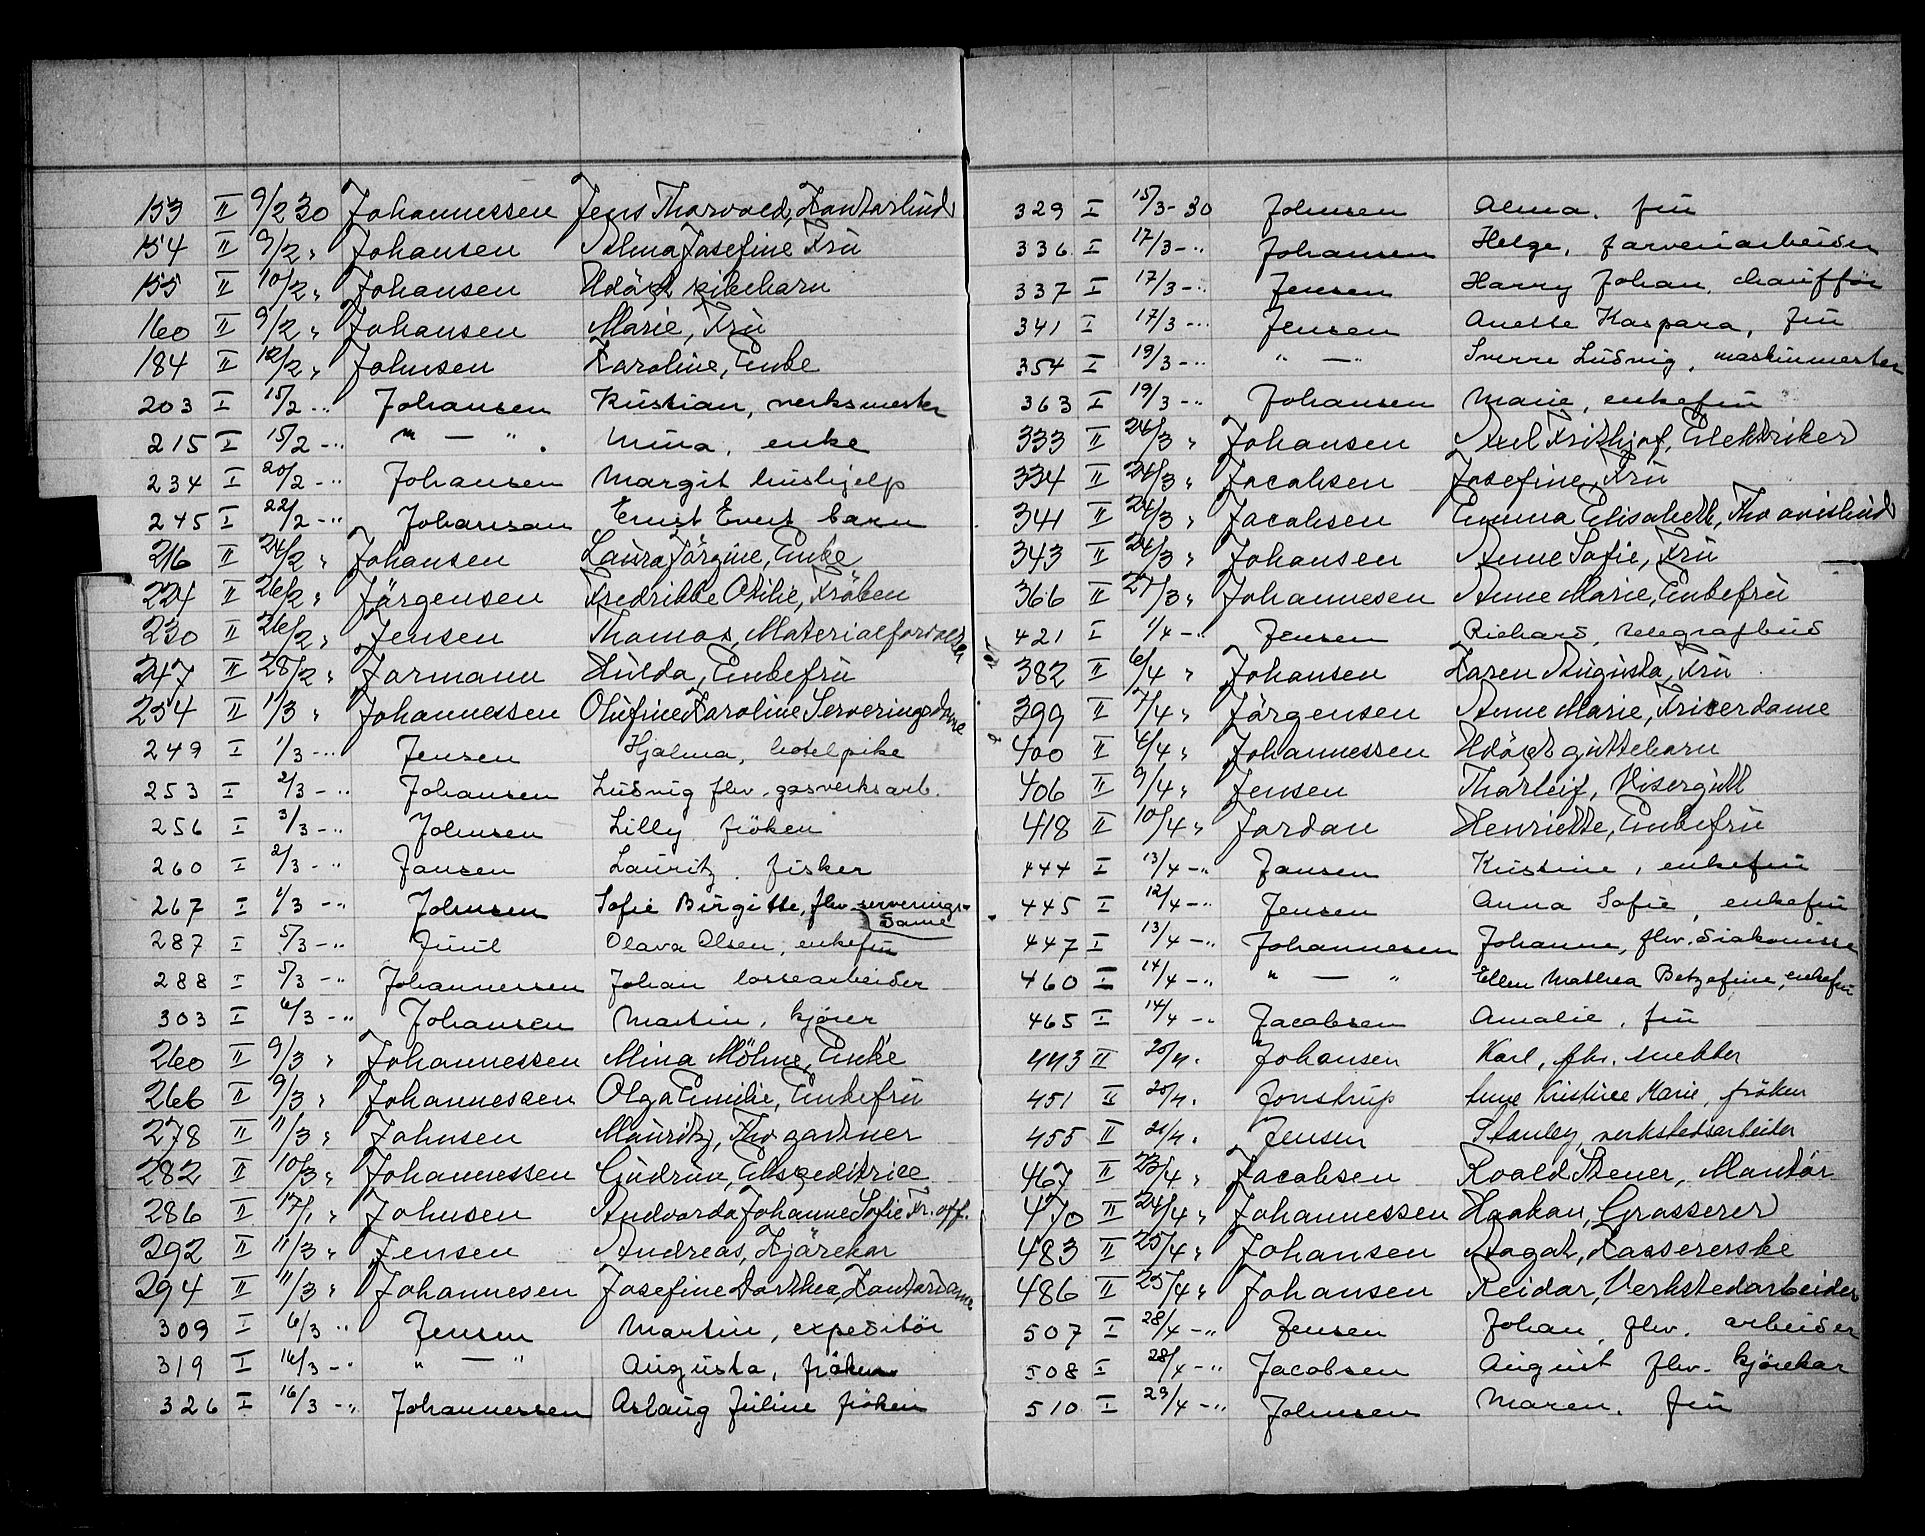 153 II 9/2 30 Johannessen Jens Thorvald, Kontorbud
154 II 9/2 " Johansen Alma Josefine Fru
155 II 10/2 " Johansen Udöpt pikebarn
160 II 9/2 " Johansen Marie, Fru
184 II 12/2 " Johnsen Karoline, Enke
203 I 15/2 -" Johansen Kristian, verksmester
215 I 15/2 -" " — " Mina, enke
234 I 20/2 -" Johansen Margit hushjelp
245 I 22/2 -" Johansson Ernst Evert barn
216 II 24/2 " Johansen Laura Jörgine, Enke
224 II 26/2 " Jörgensen Fredrikke Otilie, Fröken
230 II 26/2 " Jensen Thomas, Materialforvalter
247 II 28/2 " Jormann Hulda, Enkefru
254 II 1/3 " Johannessen Olufine Karoline Serveringsdame
249 I 1/3 -" Jensen Hjalma, hotelpike
253 I 2/3 -" Johansen Ludvig fhv. gasverksarb.
256 I 3/3 -" Johnsen Lilly fröken
260 I 2/3 -" Jansen Lauritz. fisker
267 I 1/3 -" Johnsen Sofie Birgitte, fhv serverings-
dame
287 I 5/3 -" Juul Olava Olsen, enkefru
288 I 5/3 -" Johannessen Johan lossearbeider
303 I 6/3 -" Johansen Martin, kjörer
260 II 9/3 " Johannessen Mina Möhne, Enke
266 II 9/3 " Johannessen Olga Emilie, Enkefru
278 II 11/3 " Johnsen Mauritz, Fhv gartner
282 II 10/3 " Johannessen Gudrun, Ekspeditrice
286 II 17/1 " Johnsen Andvorda Johanne Sofie Fr. off.
292 II 11/3 " Jensen Andreas, Kjörekar
294 II 11/3 " Johannesen Josefine Dorthea, Kontordame
309 I 6/3 " Jensen Martin, expeditör
319 I 16/3 -" " — " Augusta, fröken
326 I 16/3 -" Johannessen Aslaug Juline fröken
329 I 15/3-30 Johnsen Alma. fru
336 I 17/3 -" Johansen Helge, farveriarbeider
337 I 17/3 -" Jensen Harry Johan, chaufför
341 I 17/3 -" Jensen Anette Kaspara, fru
354 I 19/3 -" " — " Sverre Ludvig, maskinmester
363 I 19/3 -" Johansen Marie, enkefru
333 II 24/3 " Johansen Axel Fritzhjof, Elektriker
334 II 24/3 " Jacobsen Josefine, Fru
341 II 24/3 " Jacobsen Emma Elisabeth, Fhv avisbud
343 II 24/3 " Johansen Anne Sofie, Fru
366 II 27/3 " Johannesen Anne Marie, Enkefru
421 I 1/4 -" Jensen Richard, telegrafbud
382 II 6/4 " Johansen Karen Augusta, Fru
399 II 7/4 " Jörgensen Anne Marie, Friserdame
400 II 6/4 " Johannessen Udöpt guttebarn
406 II 9/4 " Jensen Thorleif, Visergutt
418 II 10/4 " Jordan Henriette, Enkefru
444 I 13/4 -" Jansen Kristine, enkefru
445 I 12/4 -" Jensen Anna Sofie, enkefru
447 I 13/4 -" Johannesen Johanne, fhv. diakonisse
460 I 14/4 -" " — " Ellen Mathea Betzefine, enkefru
465 I 14/4 -" Jacobsen Amalie, fru
443 II 20/4. Johansen Karl, fhv. snekker
451 II 20/4. Jonstrup Anne Kristine Marie, fröken
455 II 21/4. Jensen Stanley, verkstedsarbeider
467 II 23/4 " Jacobsen Roald Stener, Montör
470 II 24/4 " Johannessen Haakon, Grosserer
483 II 25/4 " Johansen Aagot, Kassererske
486 II 25/4 " Johansen Reidar, Verkstedarbeider
507 I 28/4 -" Jensen Johan, fhv. arbeider
508 I 28/4 -" Jacobsen August fhv. kjörekar
510 I 29/4 -" Johnsen Maren. fru